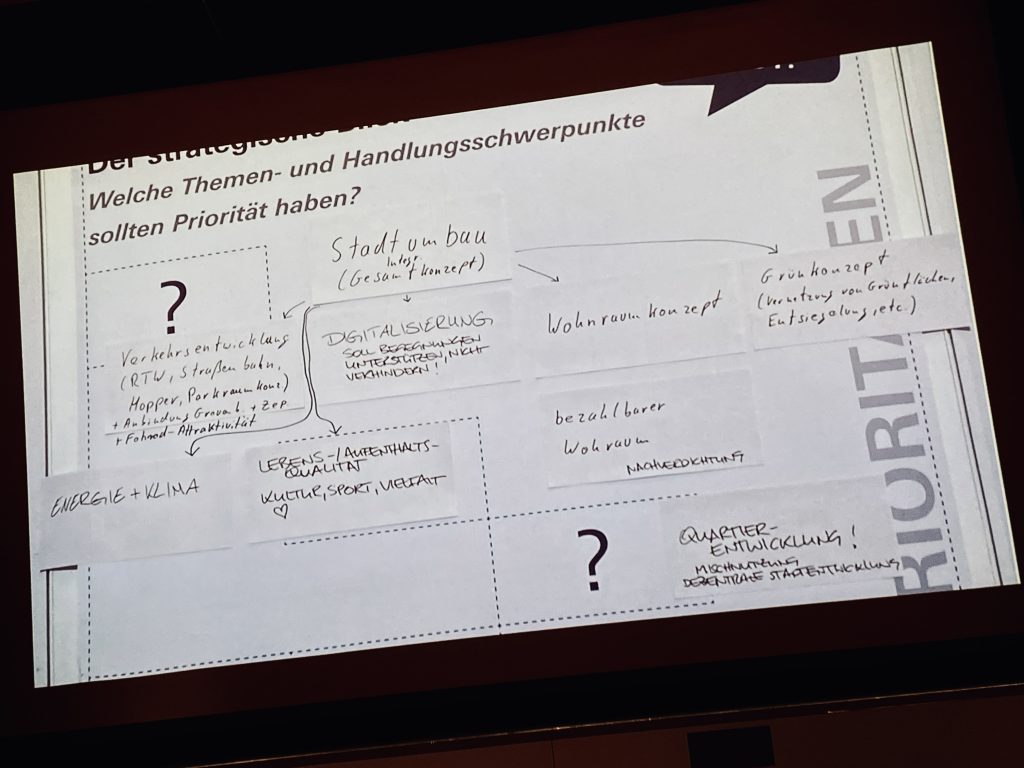 Der strategische Blick
Welche Themen- und Handlungsschwerpunkte
sollten Priorität haben?
PRIORITÄTEN
?
Stadtumbau
Integr.
(Gesamtkonzept)
Verkehrsentwicklung
(RTW, Straßenbahn,
Hopper, Parkraumkonz)
+ Anbindung Gravenb. + Zep
+ Fahrrad-Attraktivität
DIGITALISIERUNG
SOLL BEGEGNUNGEN
UNTERSTÜTZEN, NICHT
VERHINDERN!
Wohnraumkonzept
Grünkonzept
(Vernetzung von Grünflächen,
Entsiegelung, etc.)
bezahlbarer
Wohnraum
NACHVERDICHTUNG
ENERGIE + KLIMA
LEBENS-/AUFENTHALTS-
QUALITÄT
KULTUR, SPORT, VIELFALT
♡
?
QUARTIER-
ENTWICKLUNG!
MISCHNUTZUNG
DEZENTRALE STADTENTWICKLUNG